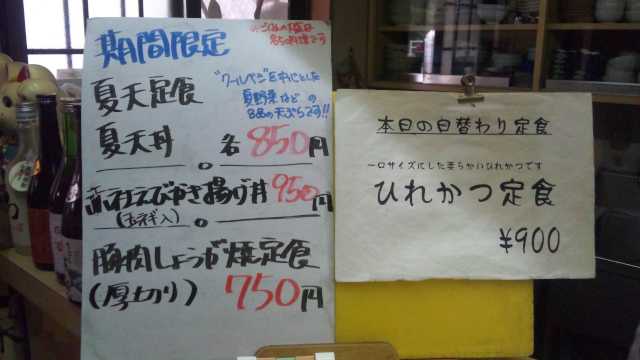 期間限定
夏天定食
"クールベジ"を中心とした
夏野菜などの
8品の天ぷらです!!
夏天丼 各850円
赤社えびかき揚げ丼 950円
(玉ネギ入)
豚肉しょうが焼定食
(厚切り) 750円
本日の日替わり定食
一口サイズにした柔らかいひれかつです
ひれかつ定食
¥900